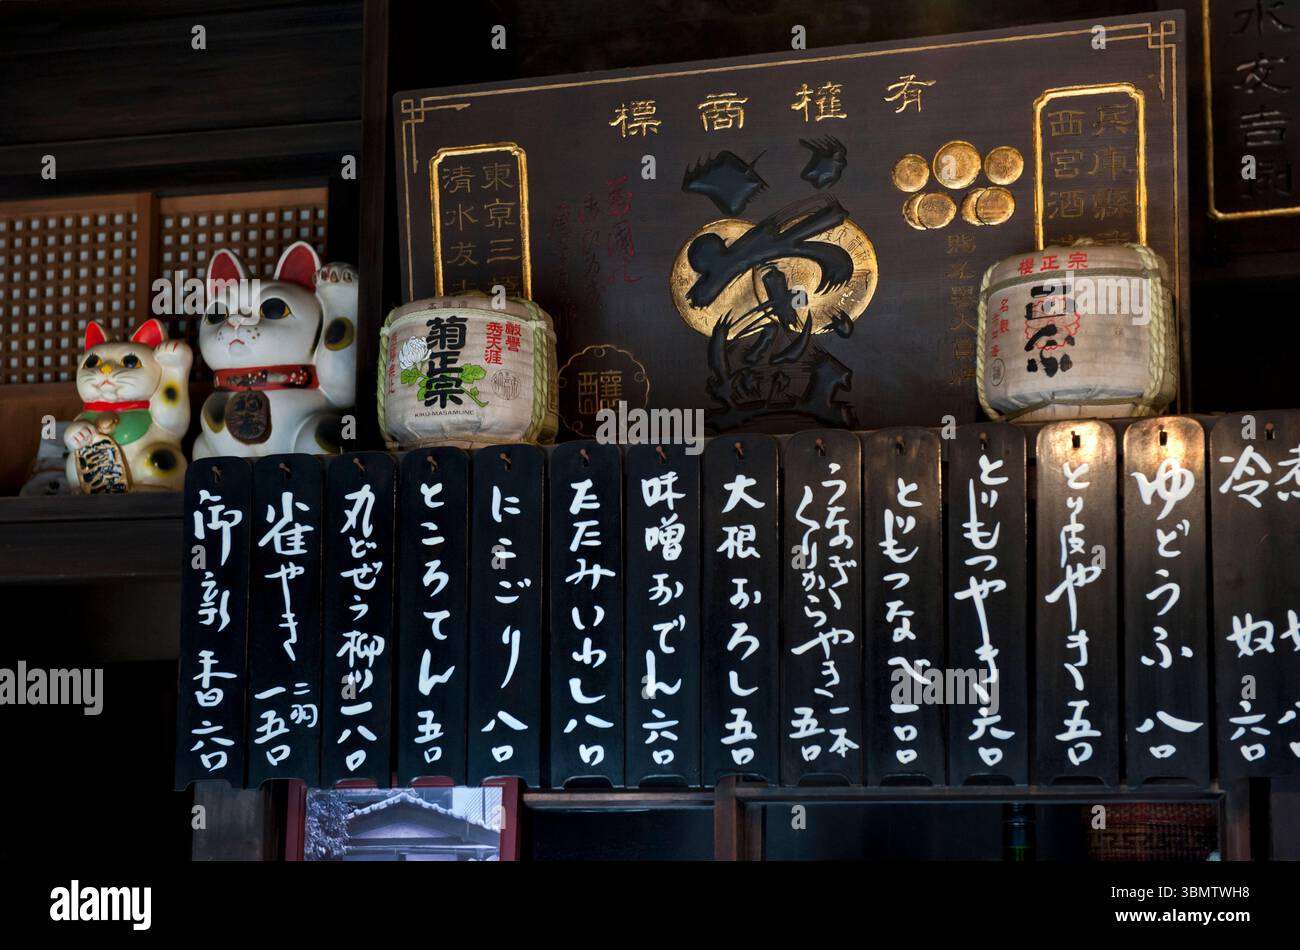 有權商標
兵庫縣
西宮酒
東京三
清水友
水友吉
櫻正宗
嚴譽
秀天涯
菊正宗
KIKU-MASAMUNE
釀
冷奴 六〇
ゆどうふ 八〇
とり皮やき 五〇
とじもつやき 六〇
とじもつなべ 一〇〇
うなぎ
くりからやき 一本
五〇
大根おろし 五〇
味噌おでん 六〇
たたみいわし 八〇
にこごり 八〇
ところてん 五〇
丸どぜう 柳川 一八〇
雀やき 二羽 一五〇
御新香 六〇
alamy
Image ID: 3BMTWH8
www.alamy.com